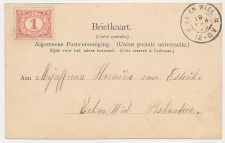 1
Briefkaart.
(Carte postale.)
Algemeene Postvereeniging. (Union postale universelle.)
Zijde voor het adres bestemd. (Côté réservé à l'adresse.)
Aan Mejuffrouw Hermina van
Eck en Wiel Postkantoor